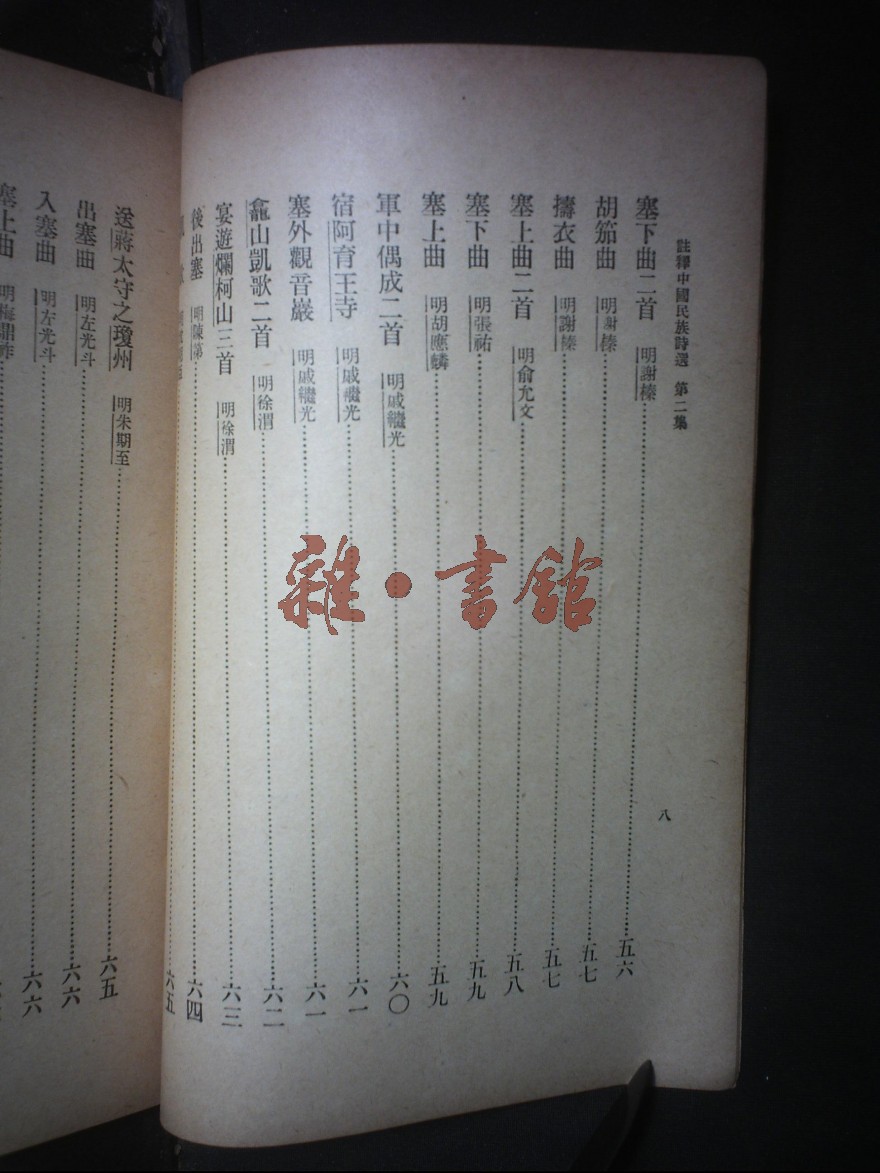 註釋中國民族詩選 第二集
八
塞下曲二首 明謝榛……五六
胡笳曲 明謝榛……五七
擣衣曲 明謝榛……五七
塞上曲二首 明俞允文……五八
塞下曲 明張祐……五九
塞上曲 明胡應麟……五九
軍中偶成二首 明戚繼光……六〇
宿阿育王寺 明戚繼光……六一
塞外觀音巖 明戚繼光……六一
龕山凱歌二首 明徐渭……六二
宴遊爛柯山三首 明徐渭……六三
後出塞 明陳第……六四
六五
送蔣太守之瓊州 明朱期至……六五
出塞曲 明左光斗……六六
入塞曲 明左光斗……六六
塞上曲 明梅鼎祚
雜·書館